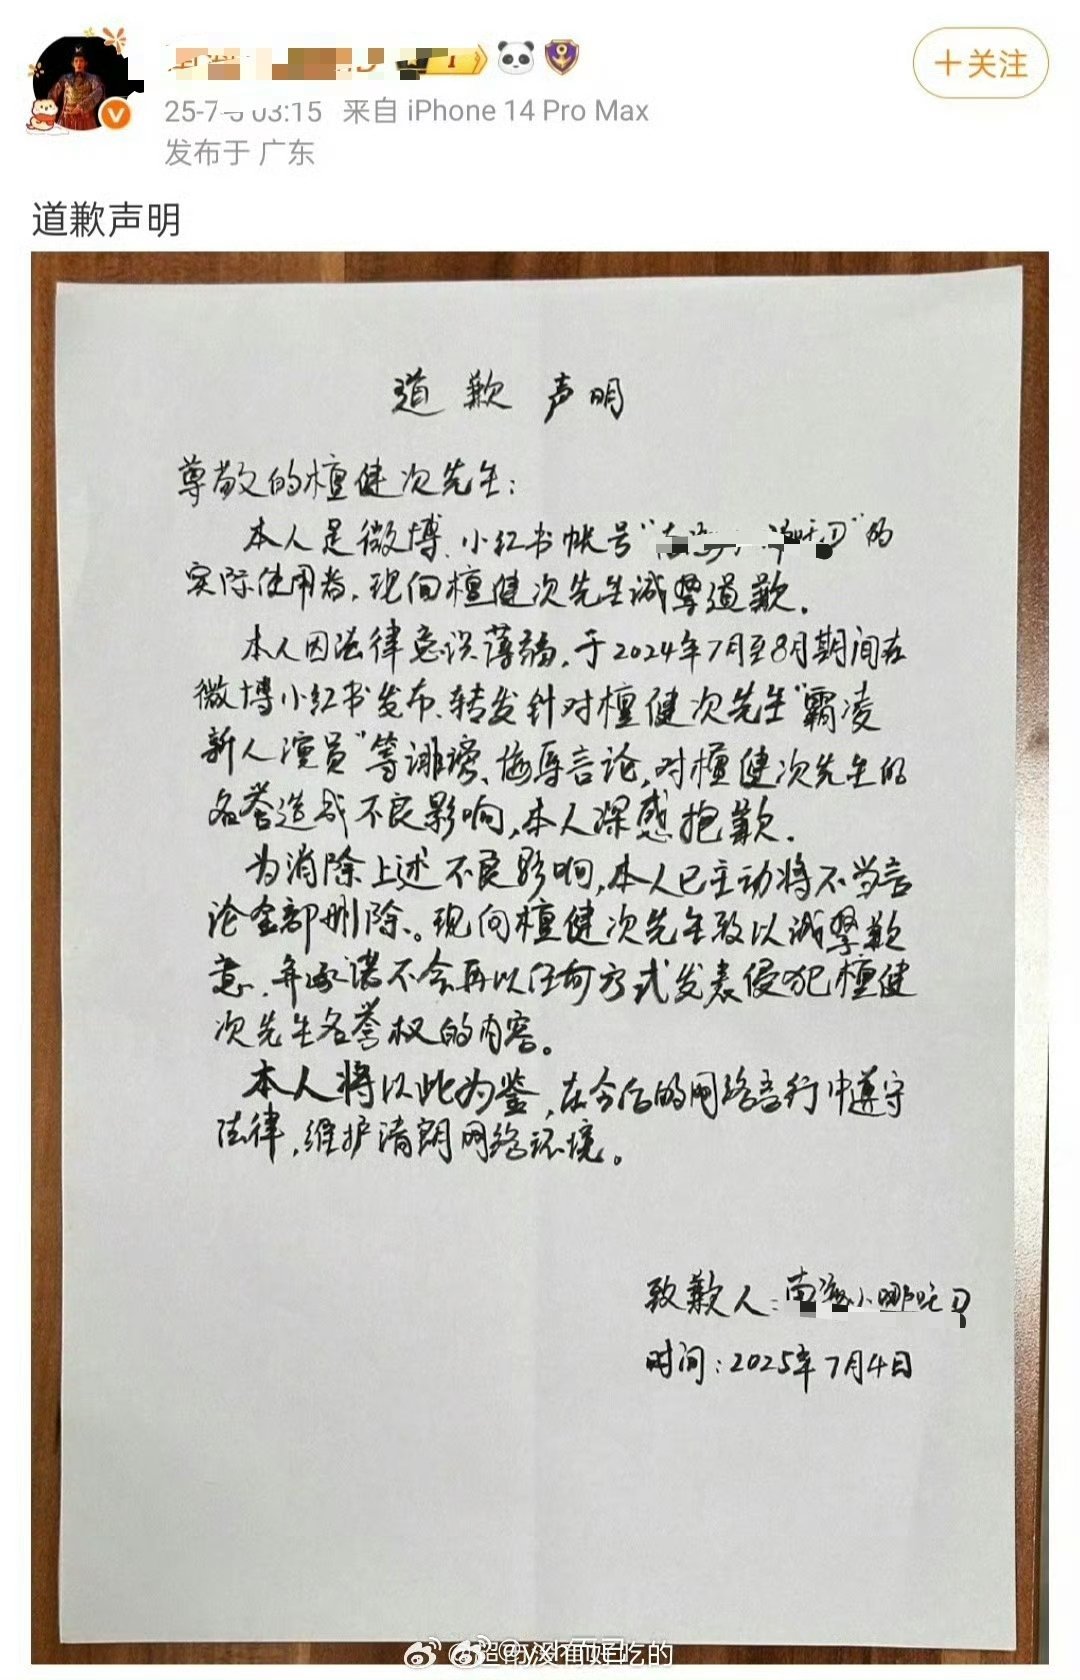 +关注
03:15 来自 iPhone 14 Pro Max
发布于 广东
道歉声明
道歉声明
尊敬的檀健次先生：
本人是微博、小红书帐号“ ”的
实际使用者，现向檀健次先生诚挚道歉。
本人因法律意识薄弱，于2024年7月至8月期间在
微博小红书发布、转发针对檀健次先生“霸凌
新人演员”等诽谤、侮辱言论，对檀健次先生的
名誉造成不良影响，本人深感抱歉。
为消除上述不良影响，本人已主动将不当言
论全部删除。现向檀健次先生致以诚挚歉
意，并承诺不会再以任何方式发表侵犯檀健
次先生名誉权的内容。
本人将以此为鉴，在今后的网络言行中遵守
法律，维护清朗网络环境。
致歉人：
时间：2025年7月4日